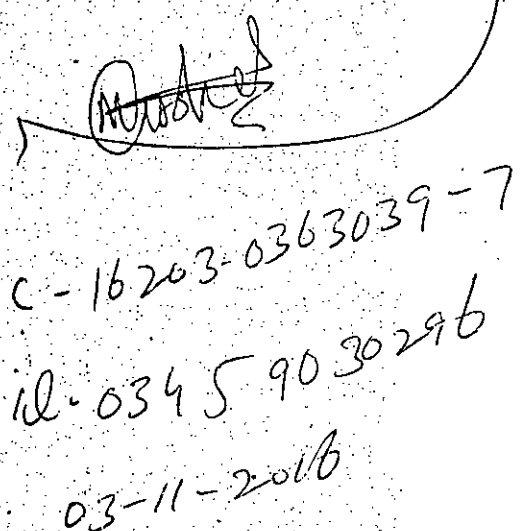 C - 16203-0363039-7
03459030296
03-11-2016